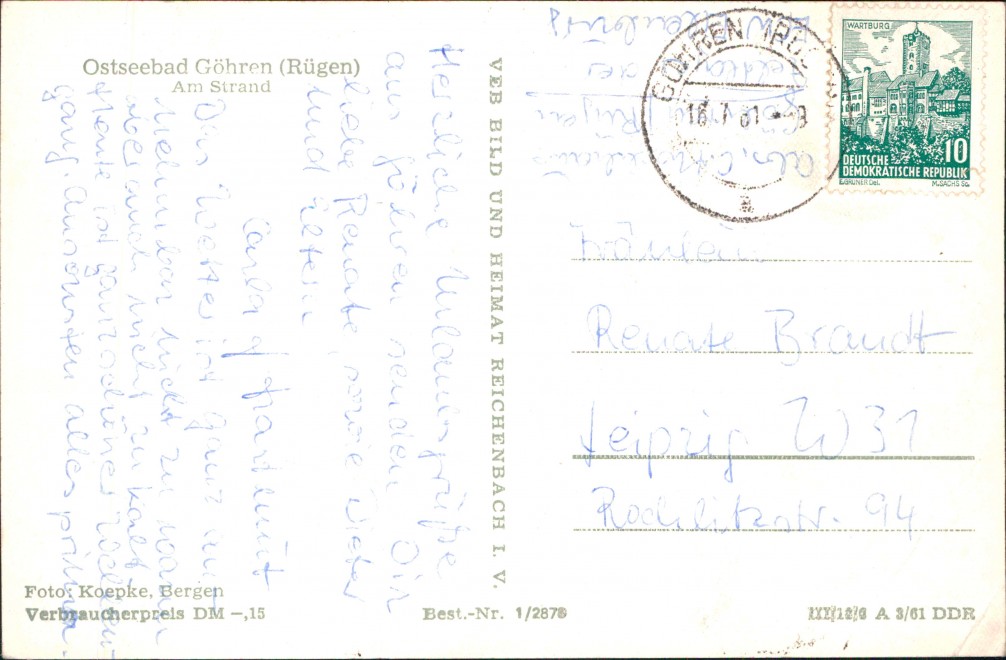 Ostseebad Göhren (Rügen)
Am Strand
Herzliche Urlaubsgrüße
aus Göhren senden Dir
liebe Renate, sowie Dieter
und Eltern
Carla & Hartmut
Das Wetter ist ganz
nicht zu warm
aber auch nicht zu kalt.
Heute ist ganz schöner
gang. Ansonsten alles prima.
VEB BILD UND HEIMAT REICHENBACH I. V.
Göhren / Rügen
GÖHREN (RÜGEN)
16.7.61 - 9
a
WARTBURG
10
DEUTSCHE
DEMOKRATISCHE REPUBLIK
E.GRUNER DEL.
M.SACHS SC.
Fräulein
Renate Brandt
Leipzig W 31
Rochlitzstr. 94
Foto: Koepke, Bergen
Verbraucherpreis DM –,15
Best.-Nr. 1/2878
A 3/61 DDR